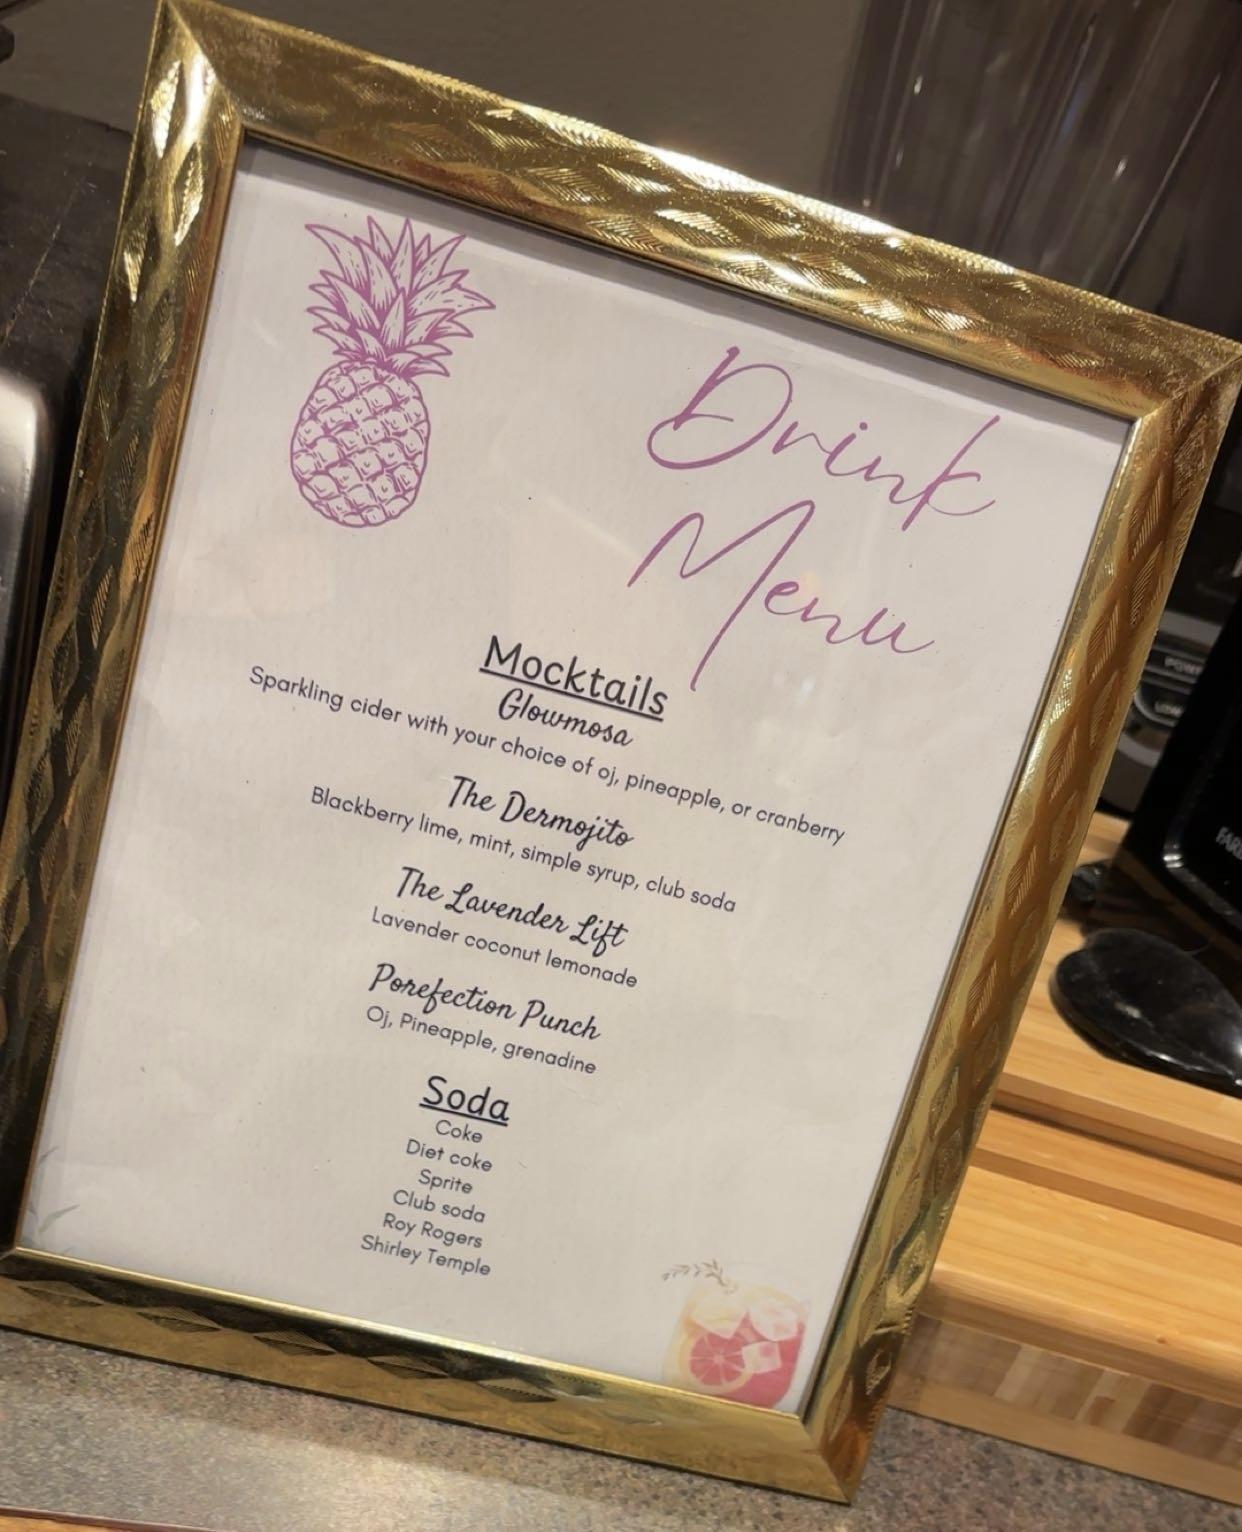 Drink
Menu
Mocktails
Glowmosa
Sparkling cider with your choice of oj, pineapple, or cranberry
The Dermojito
Blackberry lime, mint, simple syrup, club soda
The Lavender Lift
Lavender coconut lemonade
Porefection Punch
Oj, Pineapple, grenadine
Soda
Coke
Diet coke
Sprite
Club soda
Roy Rogers
Shirley Temple